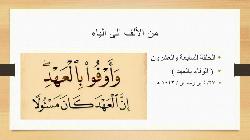 من الألف الى الياء
الحلقة السابعة والعشرون
( الوفاء بالعهد )
وَأَوْفُوا بِالْعَهْدِ
إِنَّ الْعَهْدَ كَانَ مَسْئُولًا